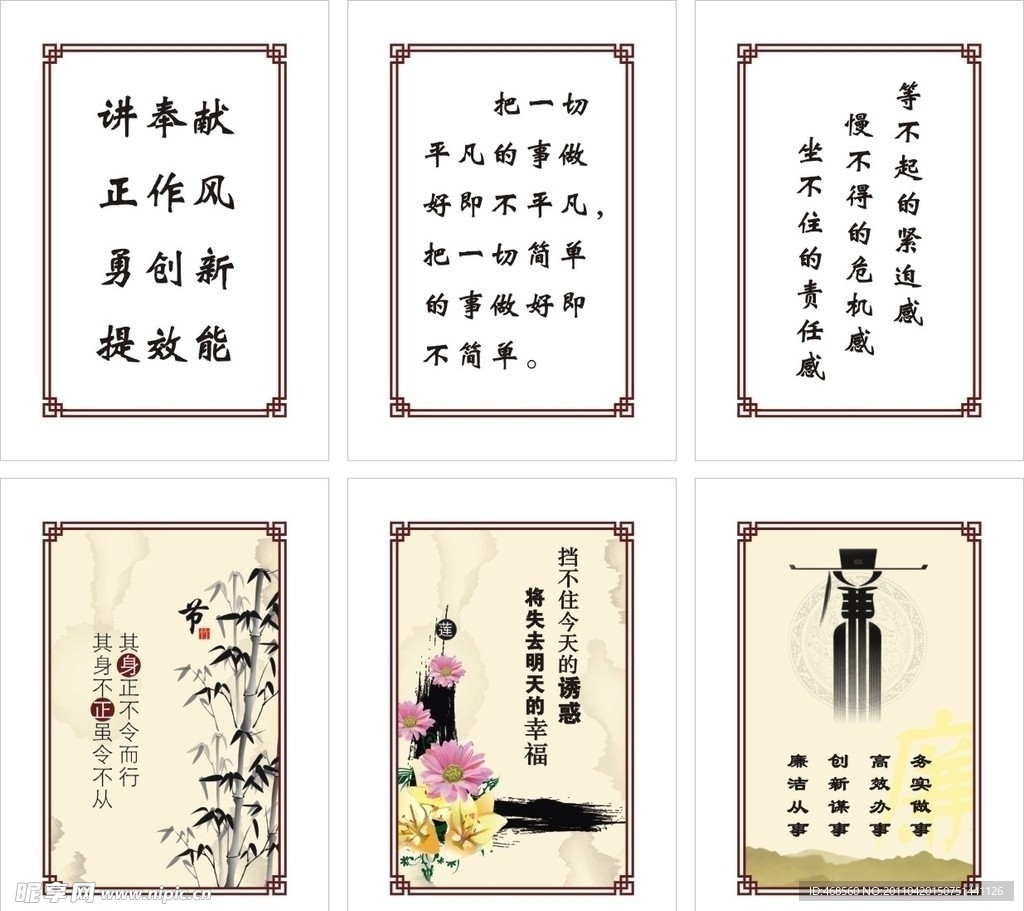 讲奉献
正作风
勇创新
提效能
把一切
平凡的事做
好即不平凡，
把一切简单
的事做好即
不简单。
等不起的紧迫感
慢不得的危机感
坐不住的责任感
节
竹
其身正不令而行
其身不正虽令不从
莲
挡不住今天的诱惑
将失去明天的幸福
廉
务实做事
高效办事
创新谋事
廉洁从事
昵享网 www.nipic.cn
ID:468560 NO:20110420150751441126